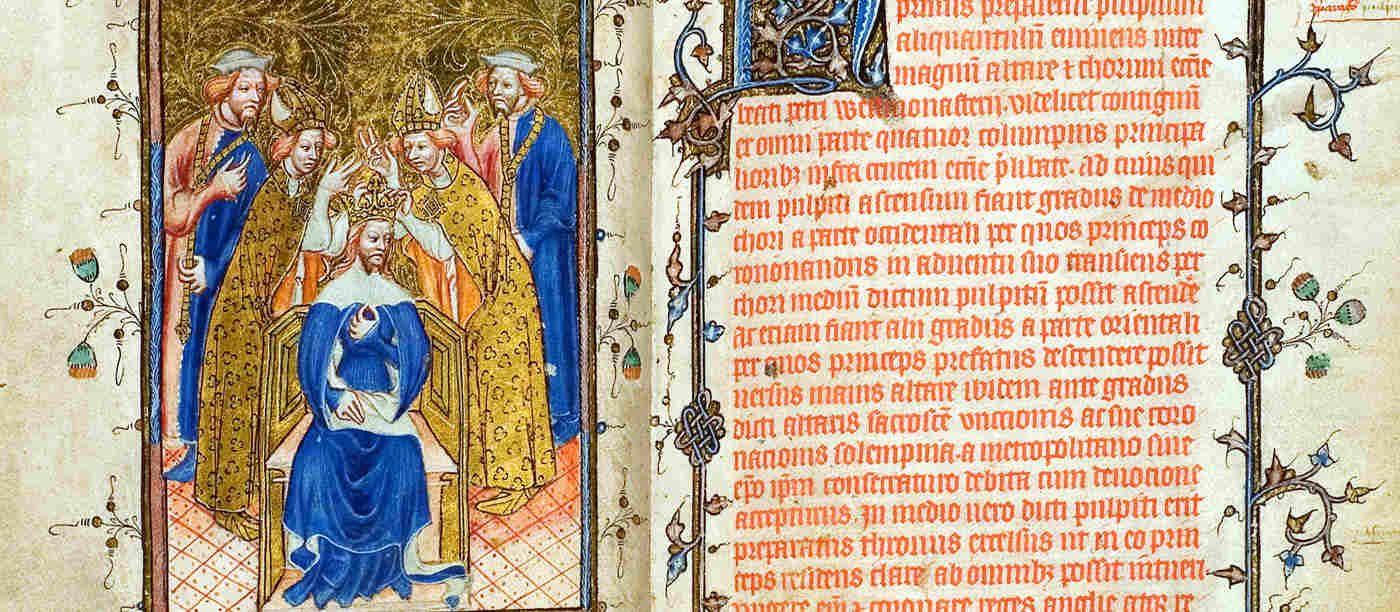 primis preparetur pulpitum
aliquantulū eminens inter
magnū altare ⁊ chorum ecc̄e
beati petri westmonasterii. videlicet contiguū
ex omni parte quatuor columpnis principa
lioribꝫ infra crucem ecc̄e p̄libate. ad cuius qui
dem pulpiti ascensum fiant gradus de medio
chori a parte occidentali per quos princeps co
ronandus in aduentu suo transiens per
chori mediū dictum pulpitū possit ascendē
Ac etiam fiant alii gradus a parte orientali
per quos princeps prefatus descendere possit
uersus maius altare ibidem ante gradus
dicti altaris sacrosc̄e unctionis ac sue coro
nacionis solempnia. a metropolitano siue
ep̄o ip̄m consecraturo debita cum deuocione
accepturus. In medio uero dicti pulpiti erit
preparatus thronus excelsus ut in eo prin
ceps residens clare ab omnibꝫ possit intueri